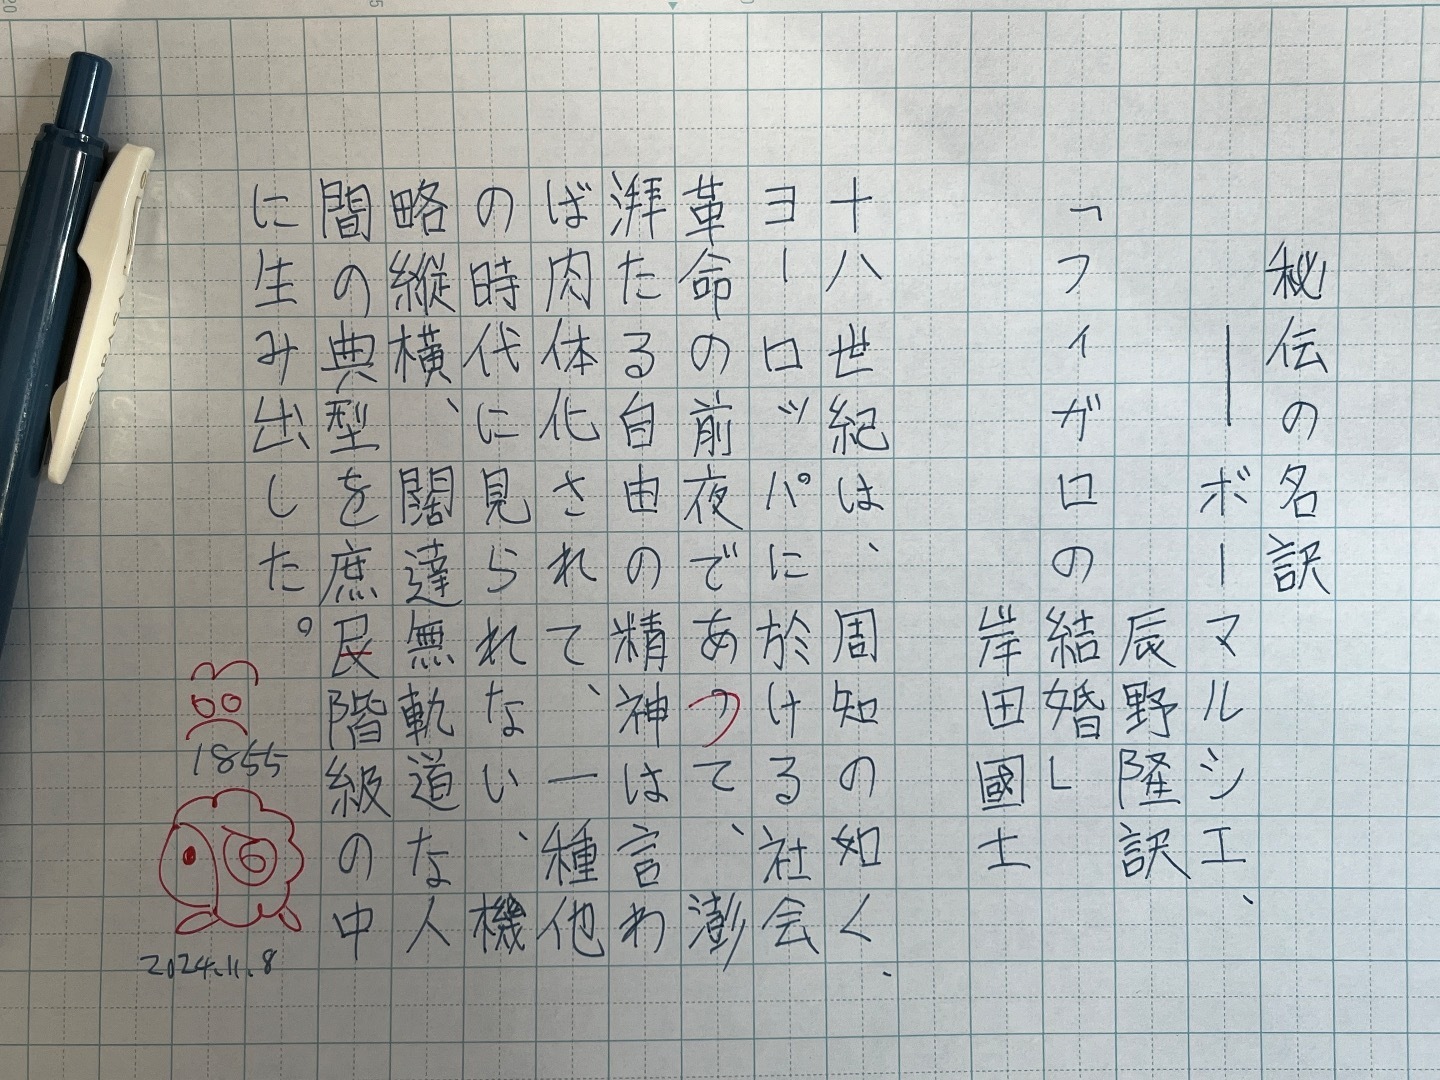 秘伝の名訳
――ボーマルシェ、
辰野隆訳
「フィガロの結婚」
岸田國士
十八世紀は、周知の如く、
ヨーロッパに於ける社会
革命の前夜であつて、澎
湃たる自由の精神は言わ
ば肉体化されて、一種他
の時代に見られない、機
略縦横、闊達無軌道な人
間の典型を庶民階級の中
に生み出した。
1855
6
2024.11.8